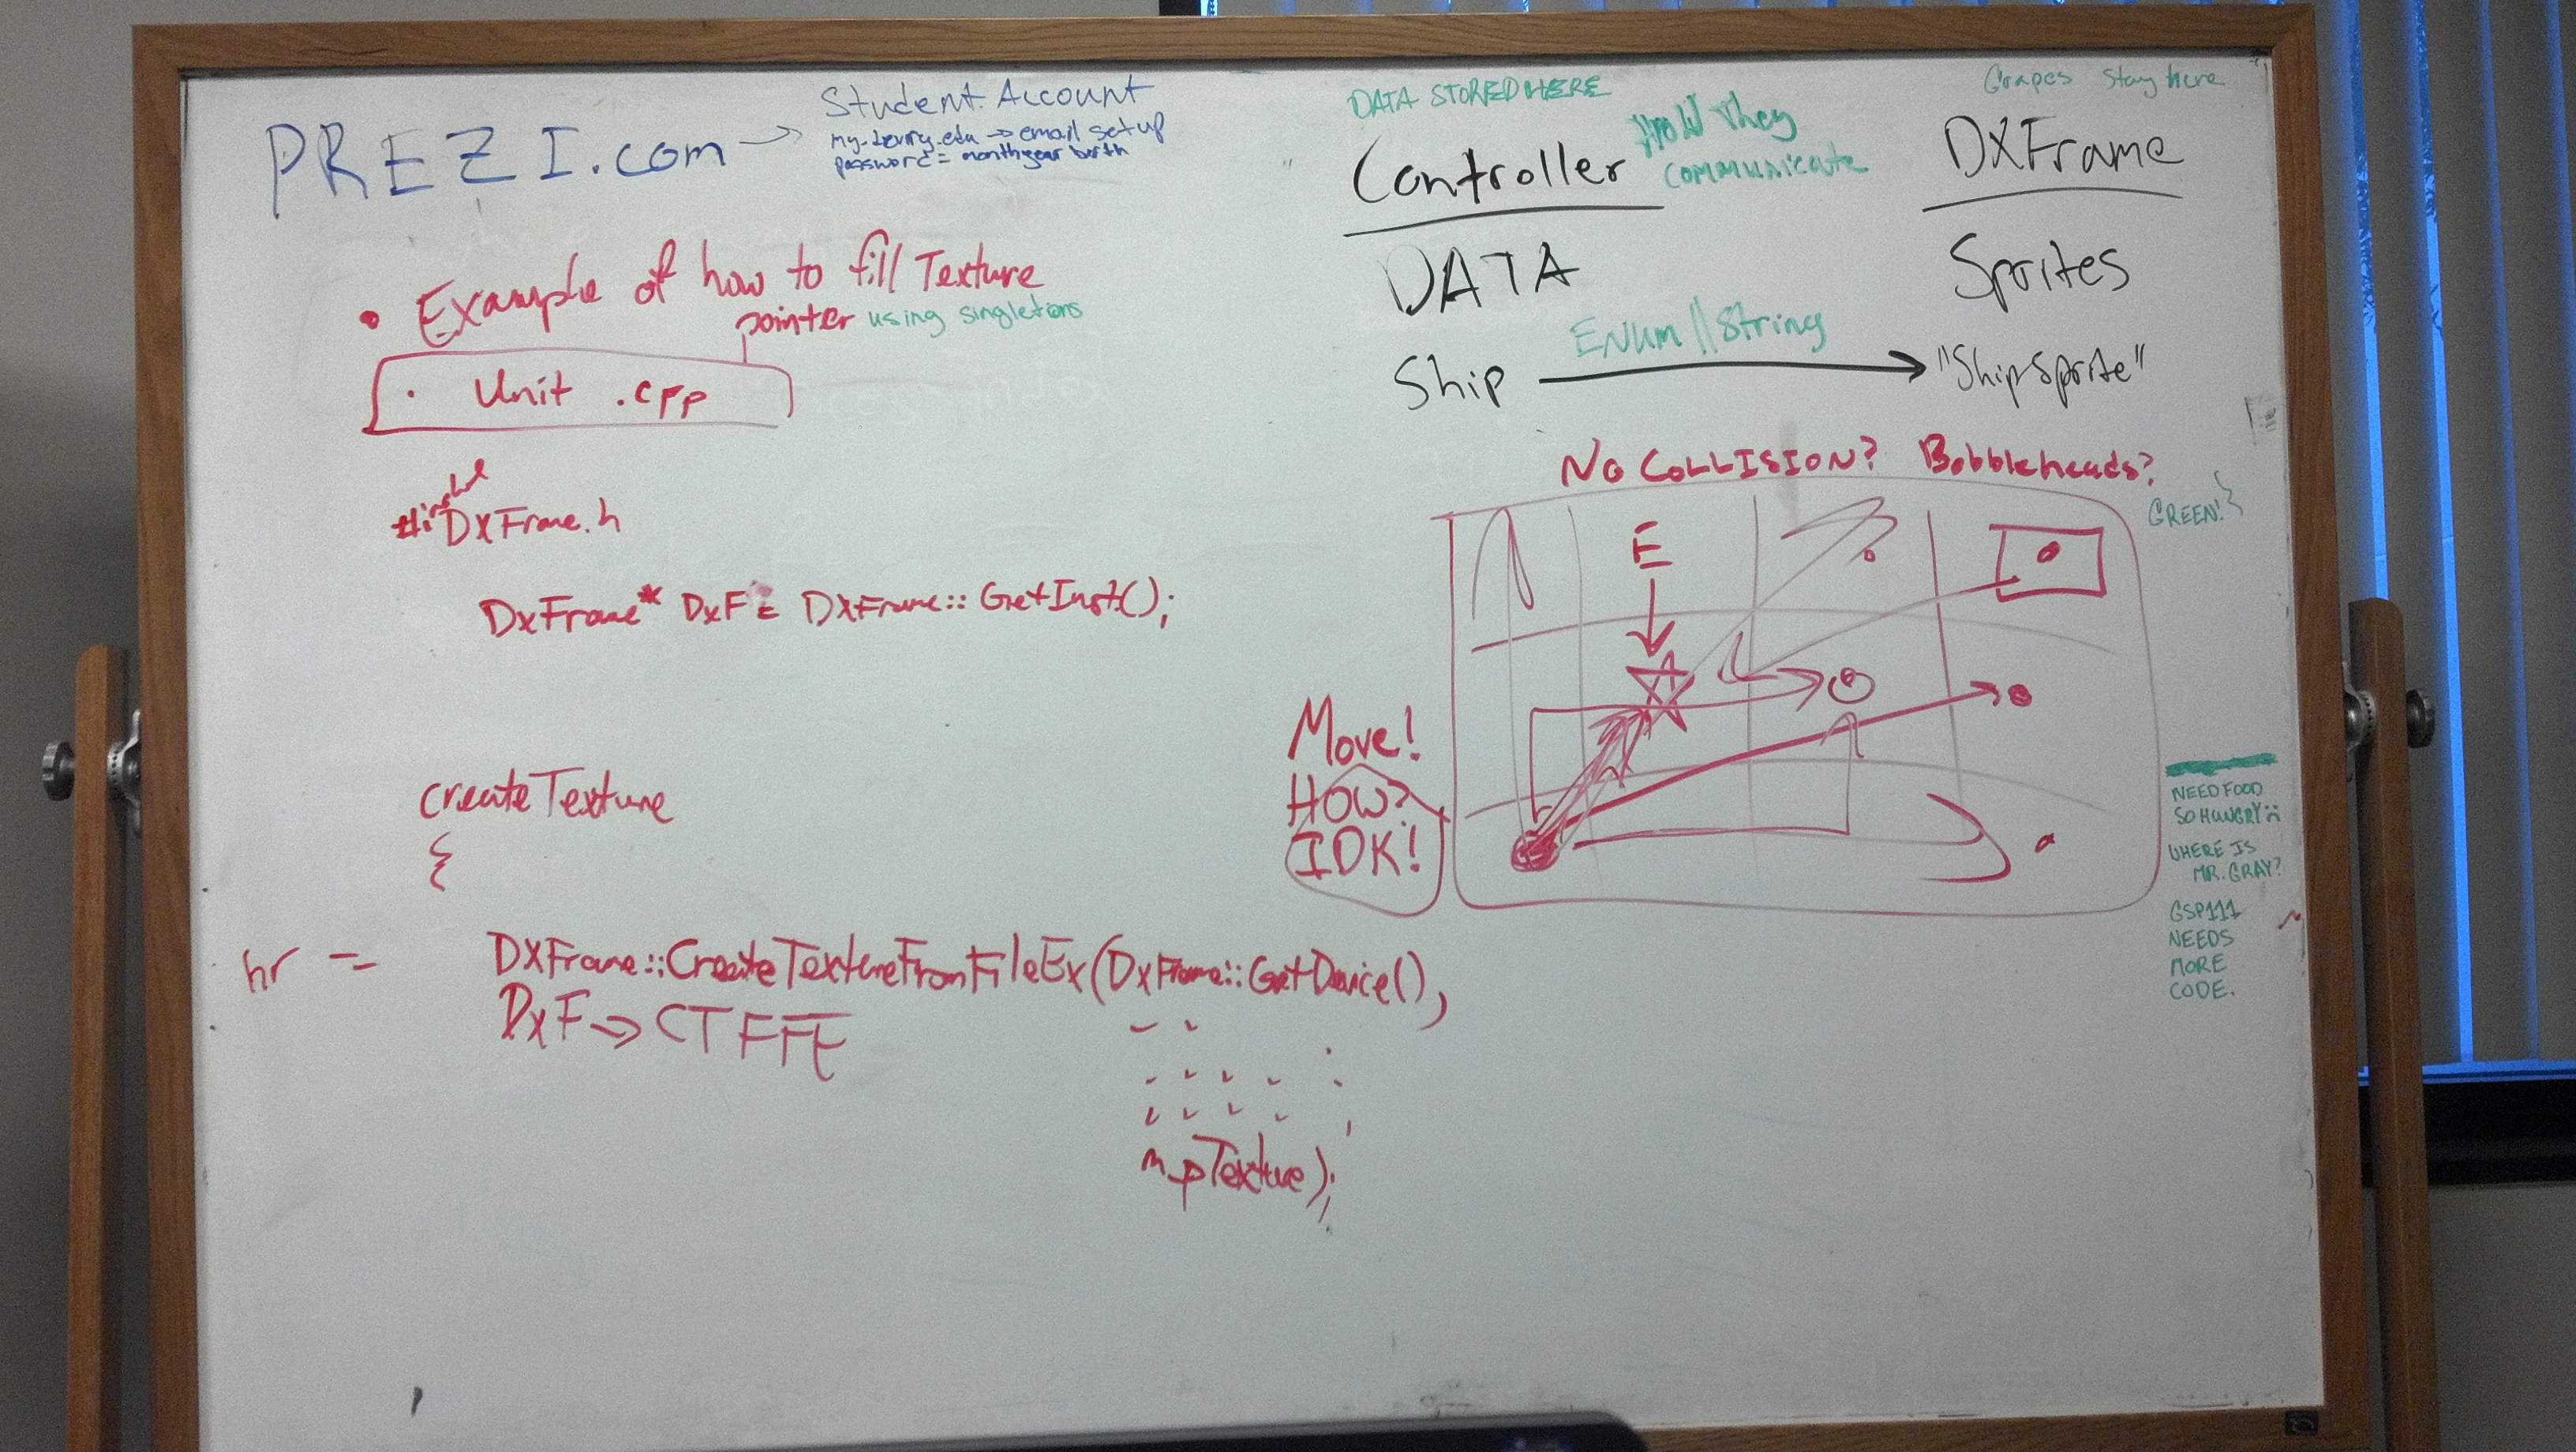 PREZI.com → Student Account
my.devry.edu → email setup
password = monthyear birth
• Example of how to fill Texture
pointer using singletons
· Unit .cpp
#includ
DxFrame.h
DxFrame* DxF = DXFrame::GetInst();
createTexture
{
hr = DXFrame::CreateTextureFromFileEx(DxFrame::GetDevice(),
DxF → CTFFE
m_pTexture);
DATA STORED HERE
Controller
HOW They
communicate
DATA
Ship
ENUM || String
Grapes Stay here
DXFrame
Sprites
"ShipSprite"
NO COLLISION? Bobbleheads?
GREEN!
E
Move!
HOW?
IDK!
NEED FOOD
SO HUNGRY
WHERE IS
MR. GRAY?
GSP111
NEEDS
MORE
CODE.